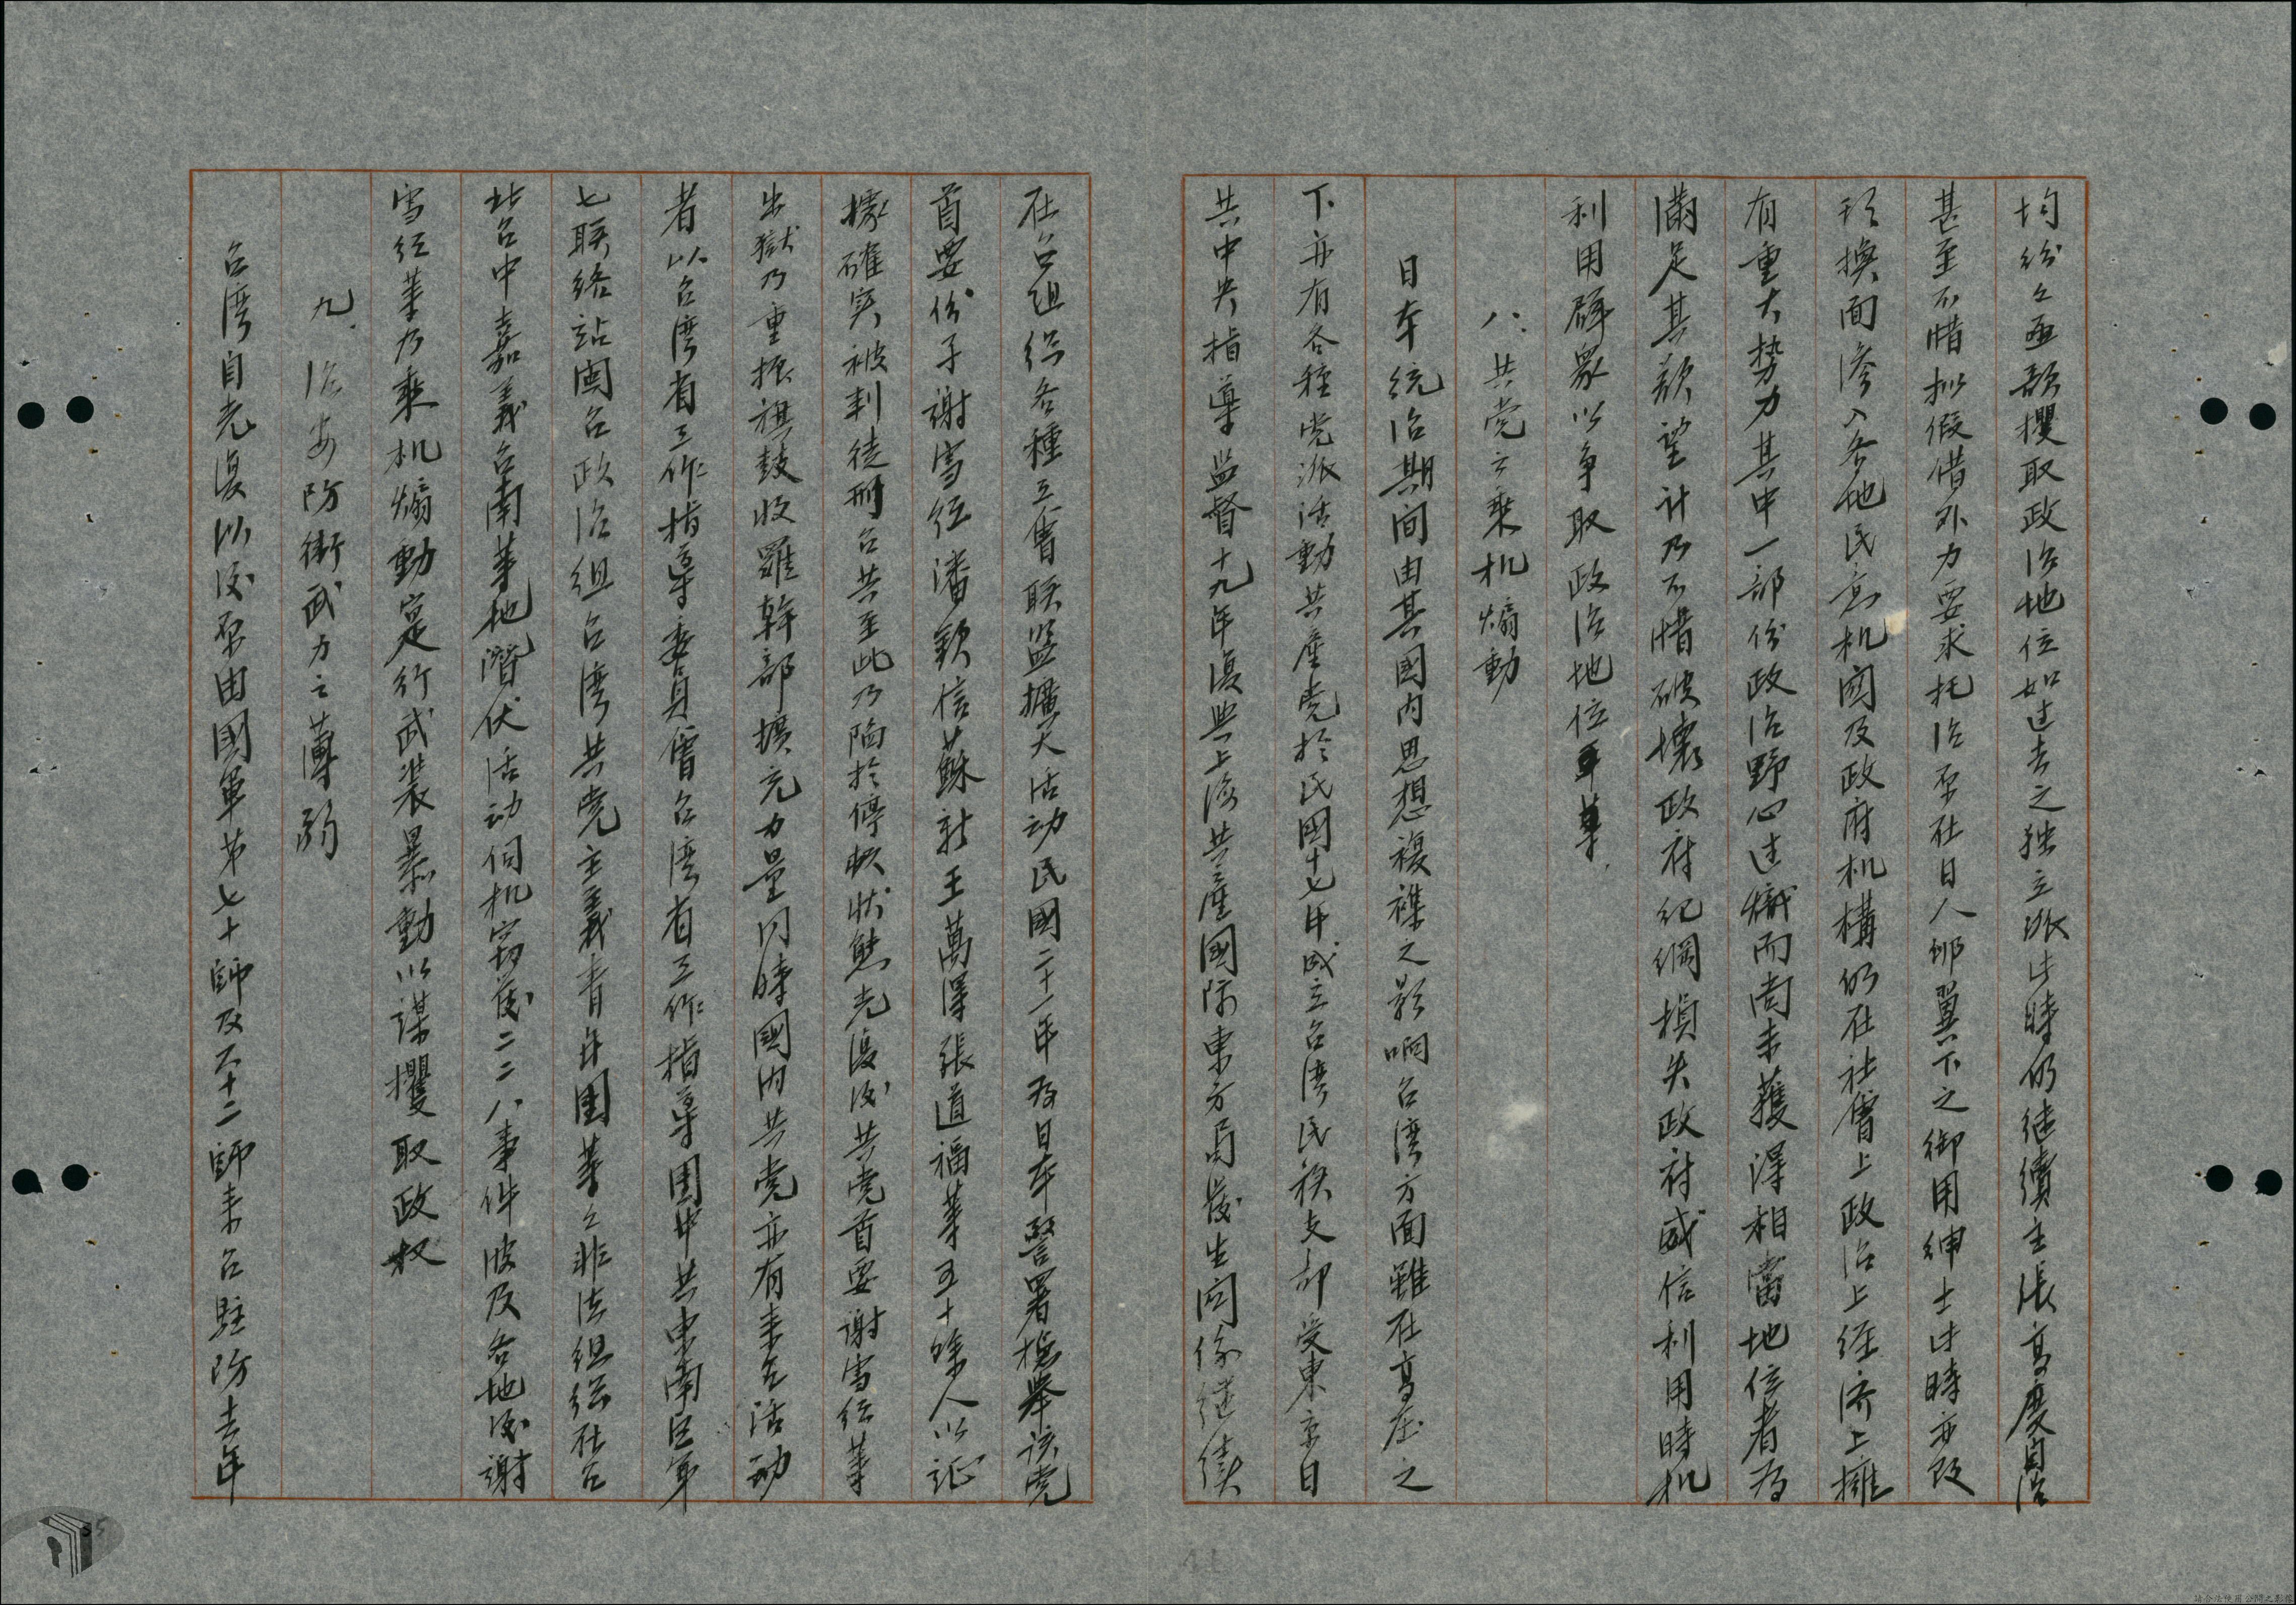 均紛紛亟欲攫取政治地位如过去之独立派此時仍继續主張高度自治
甚至不惜拟假借外力要求托治原在日人卵翼下之御用紳士此時亦改
頭換面滲入各地民意机関及政府机構仍在社會上政治上经济上擁
有重大势力其中一部份政治野心过熾而尚未獲得相當地位者为
滿足其欲望计乃不惜破壞政府纪綱損失政府威信利用時机
利用群眾以争取政治地位
八、共党之乘机煽動
日本統治期间由其國内思想複襍之影响台湾方面雖在高压之
下亦有各種党派活動共產党於民國十七年成立台湾民族支部受東京日
共中央指導监督十九年復與上海共產國际東方局發生関係继续
在台组织各種工會联盟擴大活动民國二十一年为日本警署檢举该党
首要份子謝雪红潘欽信蘇新王萬得張道福等五十餘人以证
據確实被判徒刑台共至此乃陷於停頓状態光復後共党首要謝雪红等
出獄乃重振旗鼓收羅幹部擴充力量同時國内共党亦有来台活动
者以台湾省工作指導委員會台湾省工作指導团中共東南区第
七联络站闽台政治组台湾共党主義青年团等之非法组织在台
北台中嘉義台南等地潛伏活动伺机窃發二二八事件波及各地後謝
雪红等乃乘机煽動实行武装暴動以謀攫取政权
九、治安防衛武力之薄弱
台湾自光復以後原由國軍第七十師及六十二師来台駐防去年